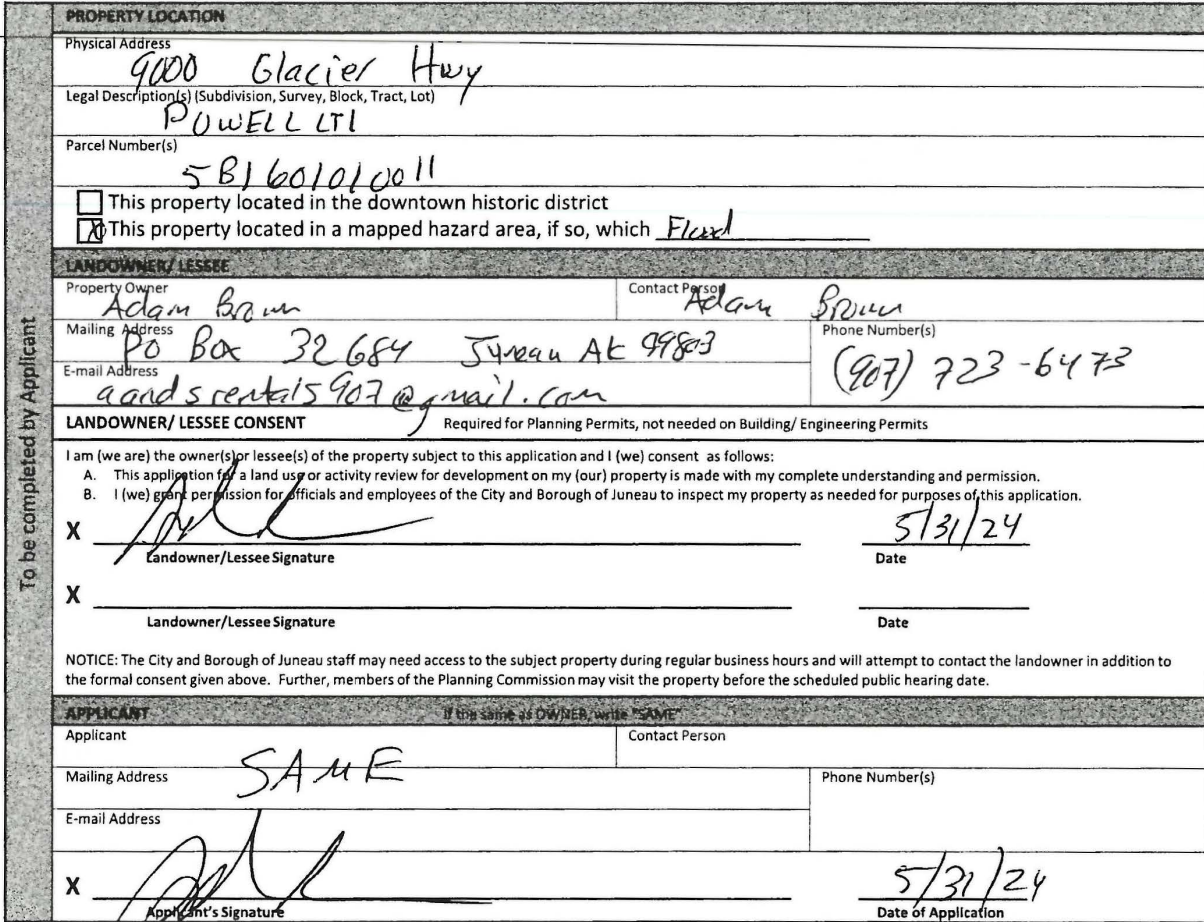 PROPERTY LOCATION
Physical Address
9000 Glacier Hwy
Legal Description(s) (Subdivision, Survey, Block, Tract, Lot)
POWELL LT1
Parcel Number(s)
5B1601010011
This property located in the downtown historic district
X This property located in a mapped hazard area, if so, which Flood
LANDOWNER/ LESSEE
Property Owner Contact Person
Adam Brown Adam Brown
Mailing Address Phone Number(s)
PO Box 32684 Juneau AK 99803 (907) 723-6473
E-mail Address
aandsrentals907@gmail.com
LANDOWNER/ LESSEE CONSENT Required for Planning Permits, not needed on Building/ Engineering Permits
I am (we are) the owner(s)or lessee(s) of the property subject to this application and I (we) consent as follows:
A. This application for a land use or activity review for development on my (our) property is made with my complete understanding and permission.
B. I (we) grant permission for officials and employees of the City and Borough of Juneau to inspect my property as needed for purposes of this application.
X 5/31/24
Landowner/Lessee Signature Date
X
Landowner/Lessee Signature Date
NOTICE: The City and Borough of Juneau staff may need access to the subject property during regular business hours and will attempt to contact the landowner in addition to
the formal consent given above. Further, members of the Planning Commission may visit the property before the scheduled public hearing date.
APPLICANT If the same as OWNER, write "SAME"
Applicant Contact Person
SAME
Mailing Address Phone Number(s)
E-mail Address
X 5/31/24
Applicant's Signature Date of Application
To be completed by Applicant